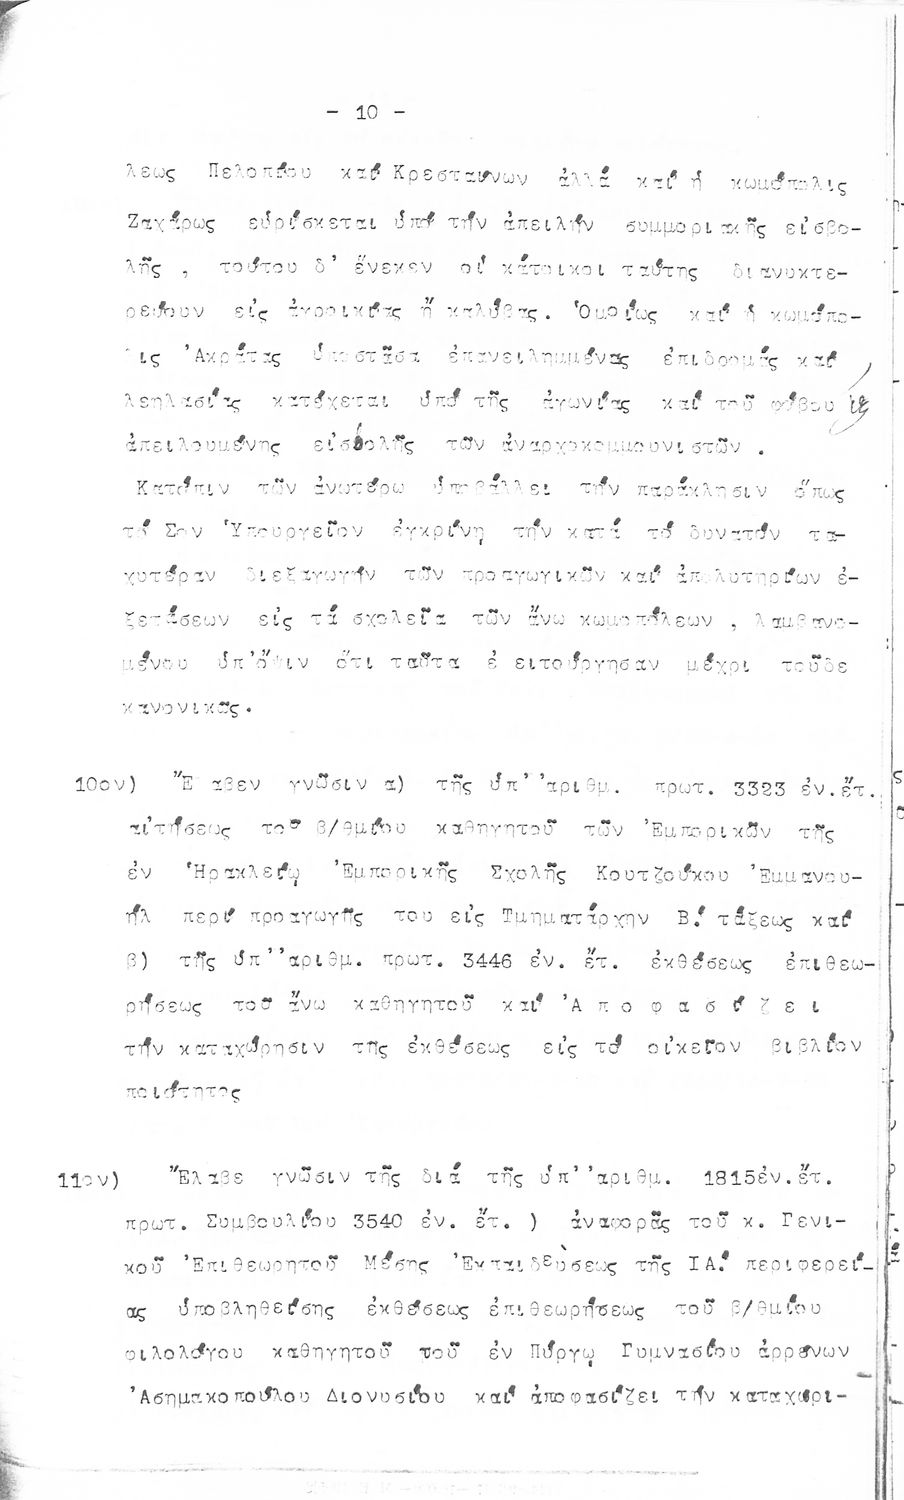 - 10 -
λεως Πελοπίου καί Κρεσταίνων ἀλλά καί ἡ κωμόπολις
Ζαχάρως εὑρίσκεται ὑπό τήν ἀπειλήν συμμοριακῆς εἰσβο-
λῆς , τούτου δ' ἕνεκεν οἱ κάτοικοι ταύτης διανυκτε-
ρεύουν εἰς ἀγροικίας ἤ καλύβας. Ὁμοίως καί ἡ κωμόπο-
λις Ἀκράτας ὑποστᾶσα ἐπανειλημμένας ἐπιδρομάς καί
λεηλασίας κατέχεται ὑπό τῆς ἀγωνίας καί τοῦ φόβου
ἀπειλουμένης εἰσβολῆς τῶν ἀναρχοκομμουνιστῶν .
Κατόπιν τῶν ἀνωτέρω ὑποβάλλει τήν παράκλησιν ὅπως
τό Σον Ὑπουργεῖον ἐγκρίνῃ τήν κατά τό δυνατόν τα-
χυτέραν διεξαγωγήν τῶν προαγωγικῶν καί ἀπολυτηρίων ἐ-
ξετάσεων εἰς τά σχολεῖα τῶν ἄνω κωμοπόλεων , λαμβανο-
μένου ὑπ'ὄψιν ὅτι ταῦτα ἐ ειτούργησαν μέχρι τοῦδε
κανονικῶς.
10ον) Ἔ αβεν γνῶσιν α) τῆς ὑπ' 'αριθμ. πρωτ. 3323 ἐν.ἔτ.
αἰτήσεως τοῦ β/θμίου καθηγητοῦ τῶν Ἐμπορικῶν τῆς
ἐν Ἡρακλείῳ Ἐμπορικῆς Σχολῆς Κουτζούκου Ἐμμανου-
ήλ περί προαγωγῆς του εἰς Τμηματάρχην Β.' τάξεως καί
β) τῆς ὑπ''αριθμ. πρωτ. 3446 ἐν. ἔτ. ἐκθέσεως ἐπιθεω-
ρήσεως τοῦ ἄνω καθηγητοῦ καί Ἀ π ο φ α σ ί ζ ε ι
τήν καταχώρησιν τῆς ἐκθέσεως εἰς τό οἰκεῖον βιβλίον
ποιότητος
11ον) Ἔλαβε γνῶσιν τῆς διά τῆς ὑπ' 'αριθμ. 1815ἐν.ἔτ.
πρωτ. Συμβουλίου 3540 ἐν. ἔτ. ) ἀναφορᾶς τοῦ κ. Γενι-
κοῦ Ἐπιθεωρητοῦ Μέσης Ἐκπαιδεὺσεως τῆς ΙΑ.' περιφερεί-
ας ὑποβληθείσης ἐκθέσεως ἐπιθεωρήσεως τοῦ β/θμίου
φιλολόγου καθηγητοῦ τοῦ ἐν Πύργῳ Γυμνασίου ἀρρένων
Ἀσημακοπούλου Διονυσίου καί ἀποφασίζει τήν καταχώρι-